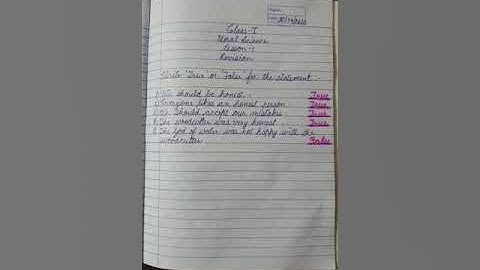 Class-I
Moral Science
Lesson-1
Revision
Write 'True' or 'False' for the statement.
We should be honest. True
Everyone likes an honest person True
We should accept our mistakes True
The woodcutter was very honest True
The God of water was not happy with the
woodcutter. False